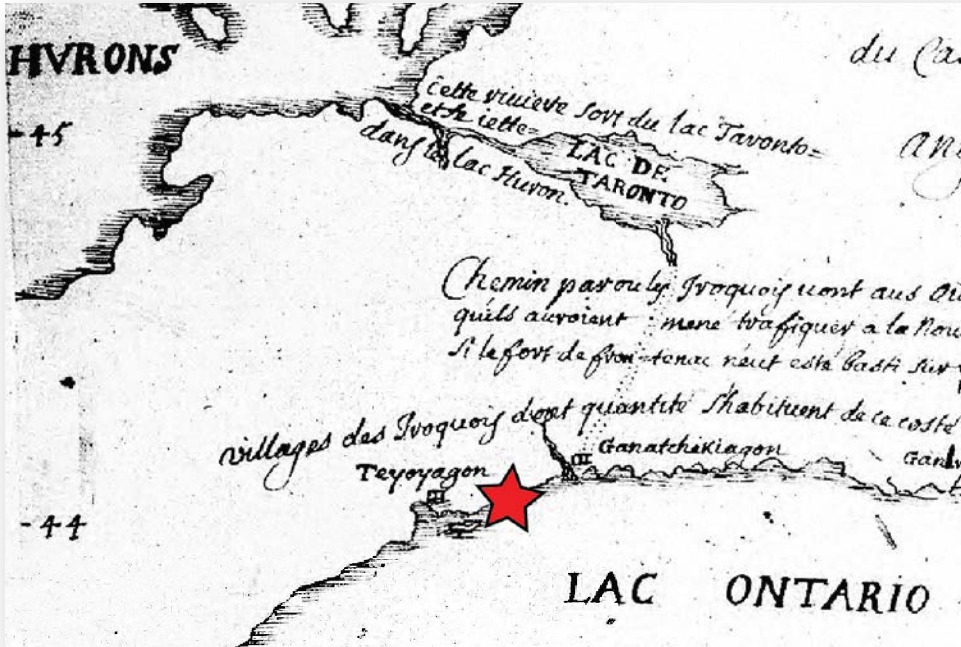 HVRONS
du Ca
-45
Cette riviere sort du lac Taronto=
et se iette=
dans le lac Huron.
LAC DE
TARONTO
Chemin par ou les Iroquois vont aus
quils auroient mene trafiquer a la Nou
si le fort de fron=tenac neut esté basti sur
villages des Iroquois dont quantité s'habituent de ce costé
Ganatchekiagon
Teyoyagon
-44
LAC ONTARIO